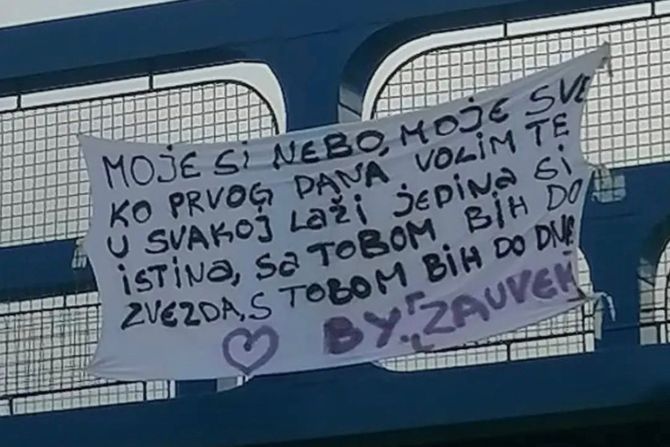 MOJE Si NEBO, MOJE SVE
KO PRVOG DANA VOLIM TE
U SVAKOJ LAŽi JEDINA Si
iSTiNA, SA TOBOM BIH DO
ZVEZDA, S TOBOM BIH DO DNA
BY: ZAUVEK